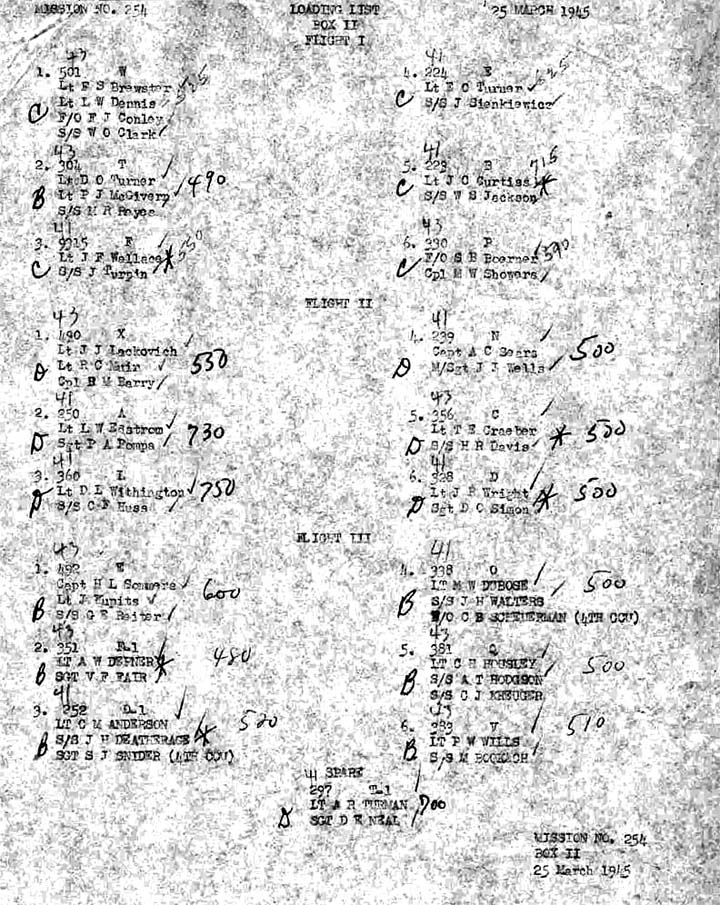 MISSION NO. 254 LOADING LIST 25 MARCH 1945
BOX II
FLIGHT I
43
1. 501 W
Lt F S Brewster 525
Lt L W Dennis
C F/O F J Conley
S/S W O Clark
43
2. 304 T
Lt D O Turner
B Lt P J McGivern 490
S/S M R Hayes
41
3. 9315 F
Lt J F Wallace 550
C S/S J Turpin
41
4. 224 E
Lt E C Turner 625
C S/S J Sienkiewicz
41
5. 223 B 715
C Lt J C Curtiss
S/S W S Jackson
43
6. 330 P
C F/O S B Boerner 590
Cpl M W Showers
FLIGHT II
43
1. 490 X
Lt J J Lackovich
D Lt R C Muir 550
Cpl B M Barry
41
2. 250 A
Lt L W Eastrom
D Sgt P A Pompa 730
41
3. 360 L
D Lt D L Withington 750
S/S C F Huss
41
4. 239 N
Capt A C Sears 500
D M/Sgt J J Wells
43
5. 356 C
Lt T E Graeber 500
D S/S H R Davis
41
6. 328 D
Lt J R Wright 500
D Sgt D C Simon
FLIGHT III
43
1. 492 E
Capt H L Sommers
B Lt J Kupits 600
S/S G E Reiter
43
2. 351 R-1
LT A W DEPNER 480
B SGT V F FAIR
41
3. 252 D-1
LT C M ANDERSON 520
B S/S J H DEATHERAGE
SGT S J SNIDER (4TH CCU)
41
4. 338 O
LT M W DUBOSE 500
B S/S J H WALTERS
F/O C B SCHEUERMAN (4TH CCU)
43
5. 381 Q
LT C H HOUSLEY 500
B S/S A T HODGSON
S/S C J KREUGER
43
6. 283 V
LT P W WILLS 510
B S/S M BOCKACH
41 SPARE
297 T-1
LT A R TURMAN 700
D SGT D E NEAL
MISSION NO. 254
BOX II
25 March 1945